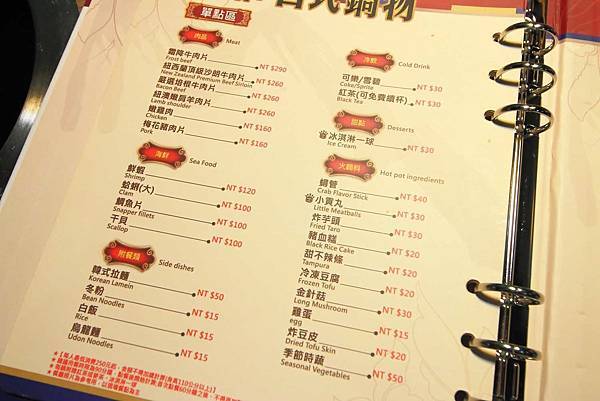 台式鍋物
單點區
肉品 Meat
霜降牛肉片 NT $290
Frost beef
紐西蘭頂級沙朗牛肉片 NT $260
New Zealand Premium Beef Sirloin
嚴選培根牛肉片 NT $260
Bacon Beef
紐澳嫩肩羊肉片 NT $260
Lamb shoulder
嫩雞肉 NT $160
Chicken
梅花豬肉片 NT $160
Pork
海鮮 Sea Food
鮮蝦 NT $120
Shrimp
蛤蜊(大) NT $100
Clam
鯛魚片 NT $100
Snapper fillets
干貝 NT $100
Scallop
附餐類 Side dishes
韓式拉麵 NT $50
Korean Lamein
冬粉 NT $15
Bean Noodles
白飯 NT $15
Rice
烏龍麵 NT $15
Udon Noodles
冷飲 Cold Drink
可樂/雪碧 NT $30
Coke/Sprite
紅茶(可免費續杯) NT $30
Black Tea
甜點 Desserts
冰淇淋一球 NT $30
Ice Cream
火鍋料 Hot pot ingredients
蟹管 NT $40
Crab Flavor Stick
小貢丸 NT $30
Little Meatballs
炸芋頭 NT $30
Fried Taro
豬血糕 NT $20
Black Rice Cake
甜不辣條 NT $20
Tampura
冷凍豆腐 NT $20
Frozen Tofu
金針菇 NT $30
Long Mushroom
雞蛋 NT $10
egg
炸豆皮 NT $20
Dried Tofu Skin
季節時蔬 NT $50
Seasonal Vegetables